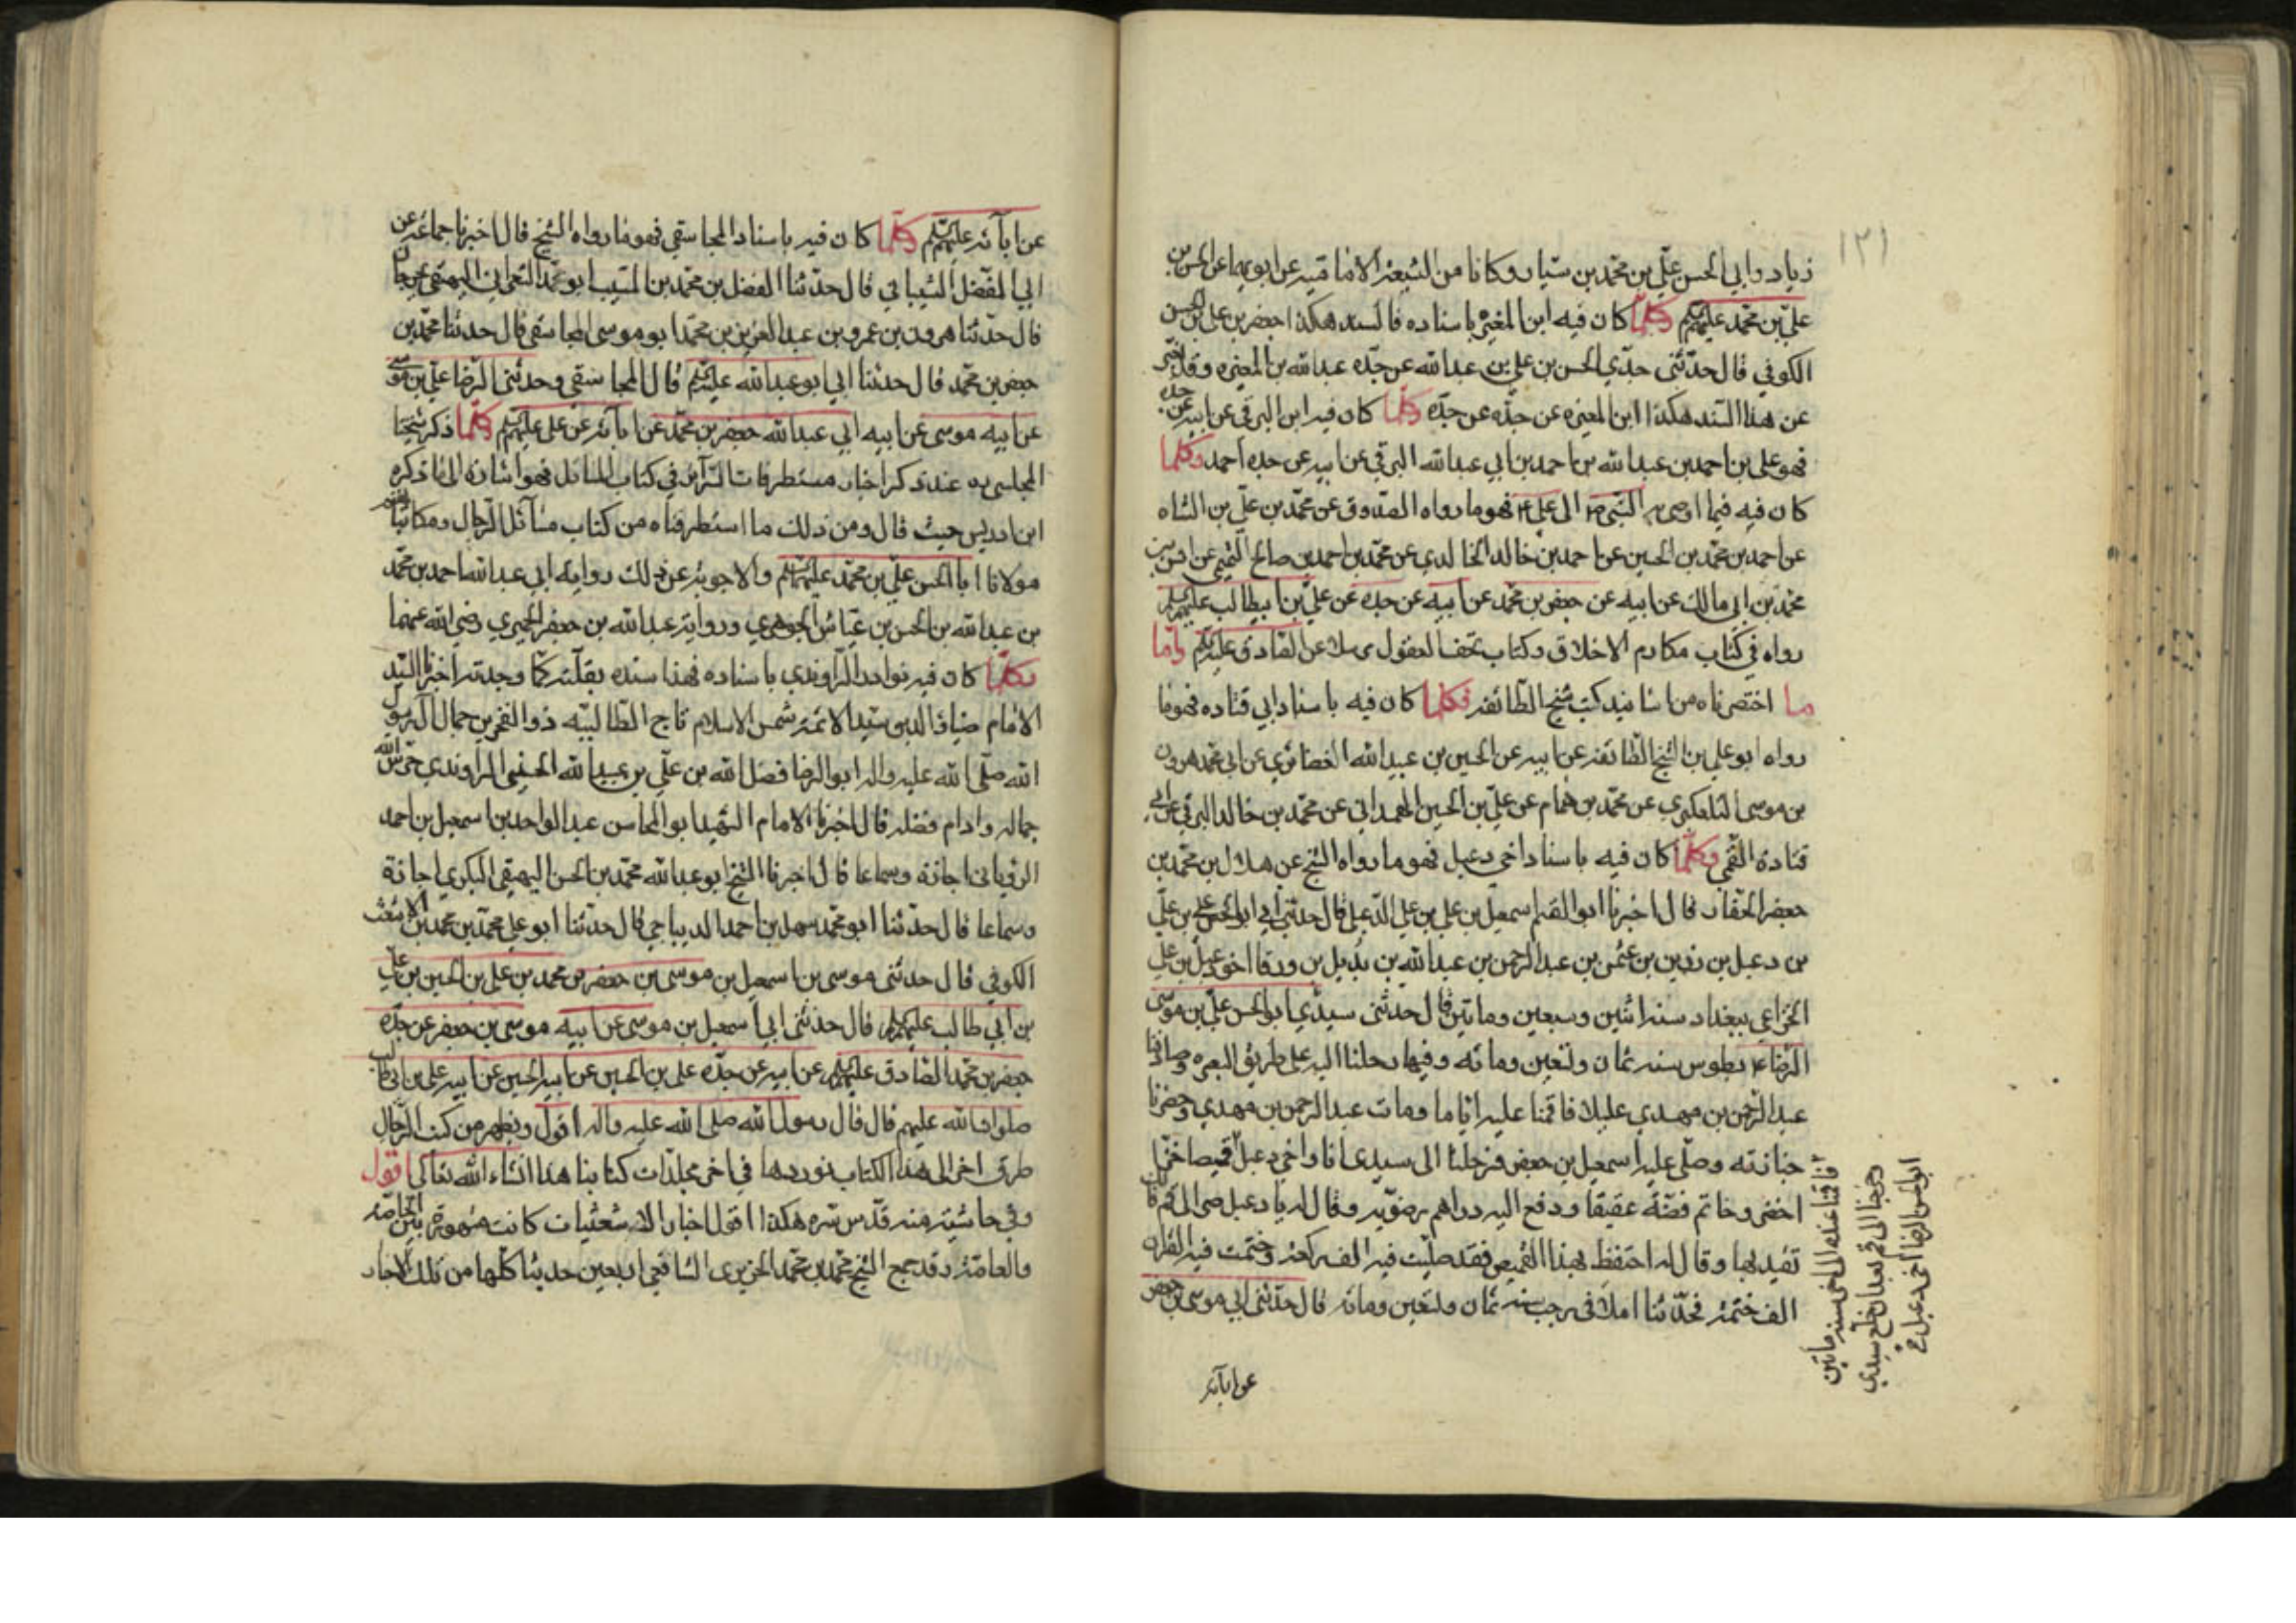 ١٣١
زياد وابي الحسن علي بن محمد بن سيار وكانا من الشيعة الامامية عن ابويهما عن الحسن بن
علي بن محمد عليهم السلم وكلما كان فيه ابن المغيرة باسناده فالسند هكذا جعفر بن علي بن الحسن
الكوفي قال حدثني جدي الحسن بن علي بن عبد الله عن جده عبد الله بن المغيره وقد
عن هذا السند هكذا ابن المغيره عن جده عن جده وكلما كان فيه ابن البرقي عن ابيه عن جده
فهو علي بن احمد بن عبد الله بن احمد بن ابي عبد الله البرقي عن ابيه عن جده احمد وكلما
كان فيه فيما اوصى به النبي ص الى علي ع فهو ما رواه الصدوق عن محمد بن علي بن الشاه
عن احمد بن محمد بن الحسين عن احمد بن خالد الخالدي عن محمد بن احمد بن صالح التميمي عن
محمد بن ابي مالك عن ابيه عن جعفر بن محمد عن ابيه عن جده عن علي بن ابيطالب عليهم السلم
رواه في كتاب مكارم الاخلاق وكتاب تحف العقول مرسلا عن الصادق عليه السلم واما
ما اختصرناه من اسانيد كتب شيخ الطائفة فكلما كان فيه باسناد ابي قتاده فهو ما
رواه ابو علي بن الشيخ الطائفة عن ابيه عن الحسين بن عبيد الله الغضائري عن ابي محمد هرون
بن موسى التلعكبري عن محمد بن همام عن علي بن الحسين الهمداني عن محمد بن خالد البرقي عن ابي
قتادة القمي وكلما كان فيه باسناد اخي دعبل فهو ما رواه الشيخ عن هلال بن محمد بن
جعفر الحفار قال اخبرنا ابو القسم اسمعيل بن علي بن علي الدعبلي قال حدثني ابي ابو الحسن علي بن علي
بن دعبل بن رزين بن عثمن بن عبد الرحمن بن عبد الله بن بديل بن ورقا اخو دعبل بن علي
الخزاعي ببغداد سنه اثنين وسبعين وماتين قال حدثني سيدي ابو الحسن علي بن موسى
الرضا ع بطوس سنه ثمان وتسعين ومائه وفيها رحلنا اليه على طريق البصره وصادفنا
عبد الرحمن بن مهدي عليلا فاقمنا عليه اياما ومات عبد الرحمن بن مهدي وحضرنا
جنازته وصلى عليه اسمعيل بن جعفر فرحلنا الى سيدي انا واخي دعبل
فاقمنا عنده الى اخر سنه ماتين
وخرجنا الى قم بعد ان خلع سيدي
ابو الحسن الرضا اخي دعبل
قميصا خزا
اخضر وخاتم فضة عقيقا ودفع اليه دراهم رضويه وقال له يا دعبل صر الى قم فانك
تفيد بها وقال له احتفظ بهذا القميص فقد صليت فيه الف ركعة وختمت فيه القران
الف ختمة فحدثنا املا في رجب سنه ثمان وتسعين ومائه قال حدثني ابي موسى بن جعفر
عن ابائه
عن ابائه عليهم السلم وكلما كان فيه باسناد المجاشعي فهو ما رواه الشيخ قال اخبرنا جماعه عن
ابي المفضل الشيباني قال حدثنا الفضل بن محمد بن المسيب ابو محمد الشعراني البيهقي بجرجان
قال حدثنا هرون بن عمرو بن عبد العزيز بن محمد ابو موسى المجاشعي قال حدثنا محمد بن
جعفر بن محمد قال حدثنا ابي ابو عبد الله عليه السلم قال المجاشعي وحدثني الرضا علي بن موسى
عن ابيه موسى عن ابيه ابي عبد الله جعفر بن محمد عن ابائه عن علي عليهم السلم وكلما ذكر شيخنا
المجلسي ره عند ذكر اخبار مستطرفات السرائر في كتاب المسائل فهو اشارة الى ما ذكره
ابن ادريس حيث قال ومن ذلك ما استطرفناه من كتاب مسائل الرجال ومكاتباتهم
مولانا ابا الحسن علي بن محمد عليهم السلم والاجوبة عن ذلك رواية ابي عبد الله احمد بن محمد
بن عبد الله بن الحسن بن عياش الجوهري ورواية عبد الله بن جعفر الحميري رضي الله عنهما
وكلما كان فيه نوادر الراوندي باسناده فهذا سنده نقلته كما وجدته اخبرنا السيد
الامام ضياء الدين سيد الائمة شمس الاسلام تاج الطالبيه ذو الفخرين جمال ال رسول
الله صلى الله عليه واله ابو الرضا فضل الله بن علي بن عبيد الله الحسني الراوندي حرس الله
جماله وادام فضله قال اخبرنا الامام الشهيد ابو المحاسن عبد الواحد بن اسمعيل بن احمد
الروياني اجازة وسماعا قال اخبرنا الشيخ ابو عبد الله محمد بن الحسن البيهقي البكري اجازة
وسماعا قال حدثنا ابو محمد سهل بن احمد الديباجي قال حدثنا ابو علي محمد بن محمد بن الاشعث
الكوفي قال حدثني موسى بن اسمعيل بن موسى بن جعفر بن محمد بن علي بن الحسين بن علي
بن ابي طالب عليهم السلم قال حدثني ابي اسمعيل بن موسى عن ابيه موسى بن جعفر عن جده
جعفر بن محمد الصادق عليهم السلم عن ابيه عن جده علي بن الحسين عن ابيه الحسين عن ابيه علي بن ابي طالب
صلوات الله عليهم قال قال رسول الله صلى الله عليه واله اقول ويظهر من كتب الرجال
طرق اخر الى هذا الكتاب نوردها في اخر مجلدات كتابنا هذا انشاء الله تعالى اقول
وفي حاشية منه قدس سره هكذا اقول اخبار الاشعثيات كانت مشهورة بين الخاصة
والعامة وقد جمع الشيخ محمد بن محمد الجزيري الشافعي اربعين حديثا كلها من تلك الاخبار